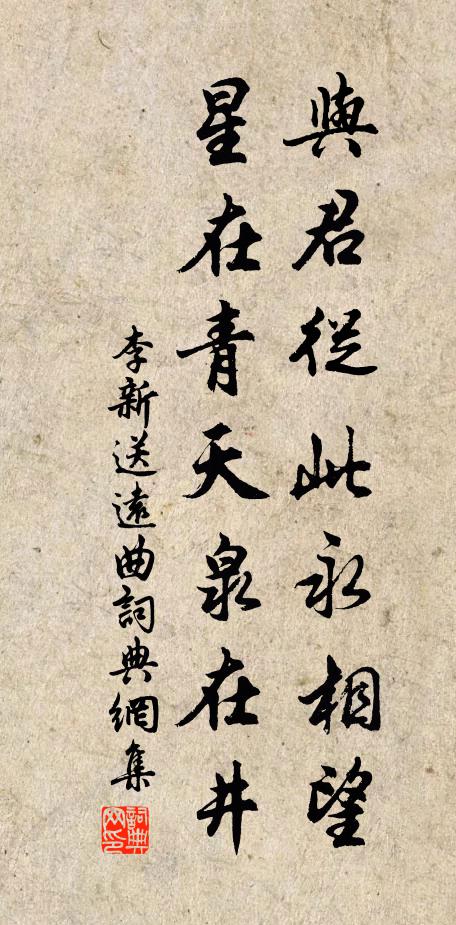 與君從此永相望
星在青天泉在井
李新送遠曲詞典網集
詞典网印